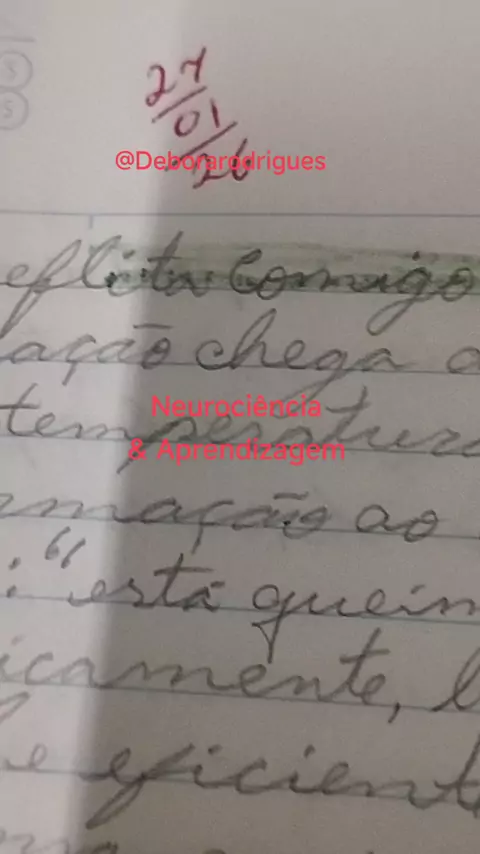 27
01
26
@Deborarodrigues
eflita comigo
ação chega a
Neurociência
temperatura
& Aprendizagem
mação ao
: "está queim
icamente, l
e eficient